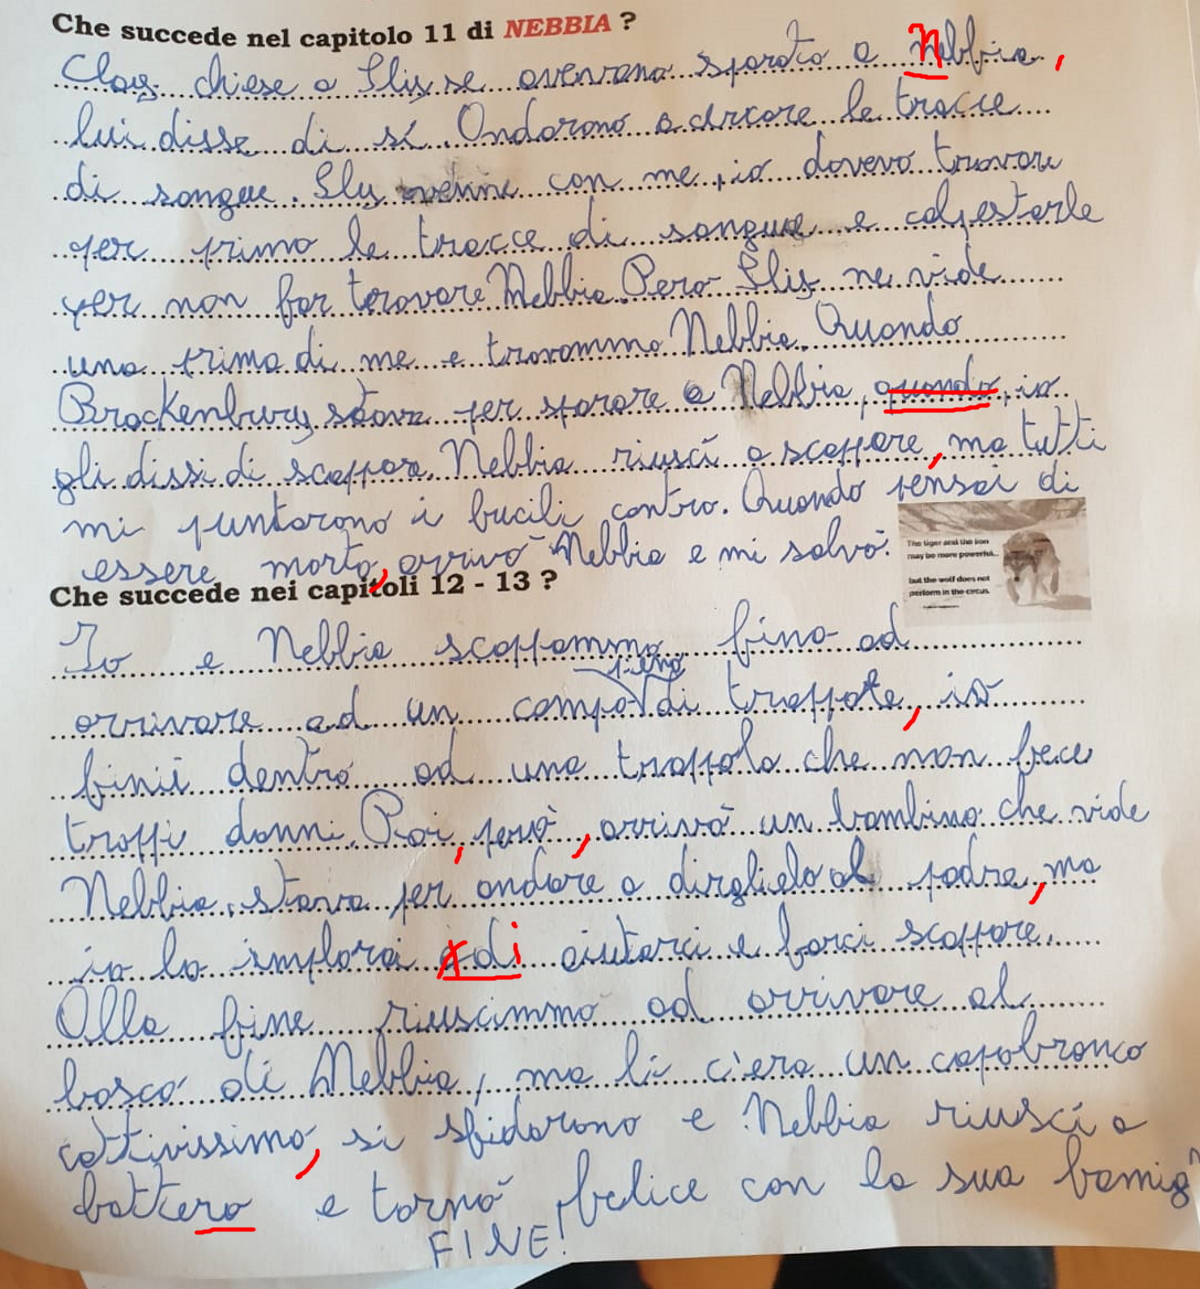 Che succede nel capitolo 11 di NEBBIA ?
Clay chiese a Sly se avevano sparato a Nebbia,
lui disse di sí. Andarono a circare le tracce
di sangue. Sly venne con me, io dovevo trovare
per primo le tracce di sangue e calpestarle
per non far trovare Nebbia. Però Sly ne vide
una prima di me e trovammo Nebbia. Quando
Brockenbury stava per sparare a Nebbia, quando, io
gli dissi di scappare. Nebbia riuscí a scappare, ma tutti
mi puntarono i fucili contro. Quando pensai di
essere morto, arrivò Nebbia e mi salvò.
The tiger and the lion
may be more powerful...
but the wolf does not
perform in the circus.
Che succede nei capitoli 12 - 13 ?
Io e Nebbia scappammo fino ad
pieno
arrivare ad un campo di trappole, io
finii dentro ad una trappola che non fece
troppi danni. Poi, però, arrivò un bambino che vide
Nebbia, stava per andare a dirglielo al padre, ma
io lo implorai di aiutarci e farci scappare.
Alla fine riuscimmo ad arrivare al
bosco di Nebbia, ma lí c'era un capobranco
cattivissimo, si sfidarono e Nebbia riuscí a
battero e tornò felice con la sua famig
FINE!